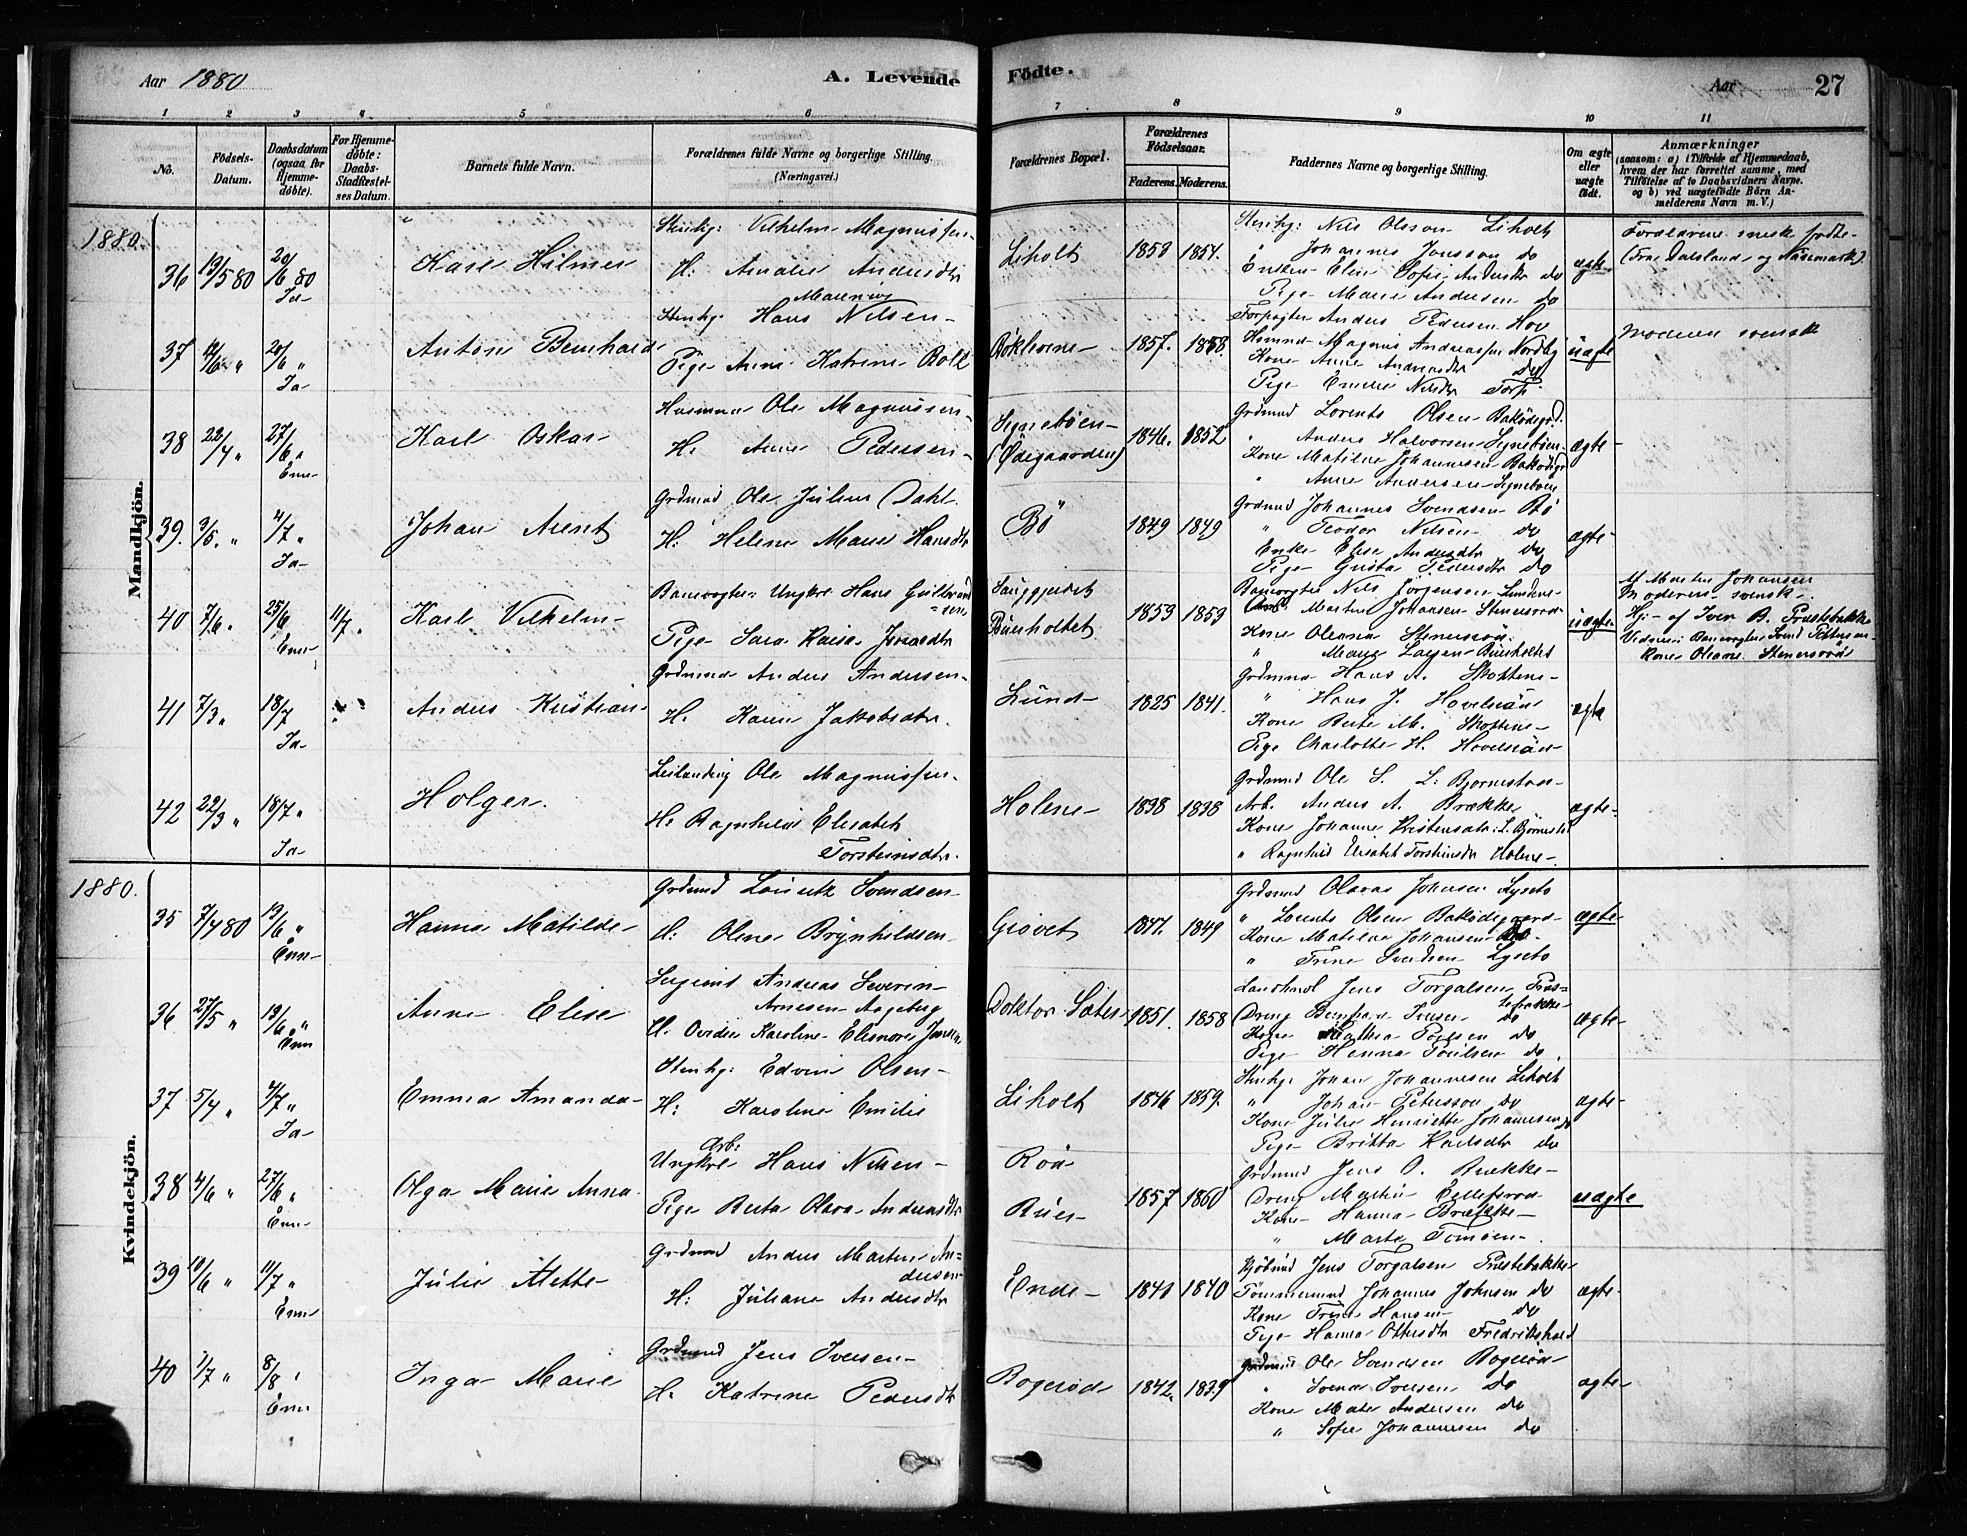 Aar 1880
A. Levende
Födte.
Aar
27
1 2 3 4 5 6 7 8 9 10 11
No.
Födsels-Datum.
Daabsdatum (ogsaa for Hjemme-döbte).
For Hjemme-döbte: Daabs-Stadfæstelses Datum.
Barnets fulde Navn.
Forældrenes fulde Navne og borgerlige Stilling. (Næringsvei.)
Forældrenes Bopæl.
Forældrenes Födselsaar.
Faderens. Moderens.
Faddernes Navne og borgerlige Stilling.
Om ægte eller uægte födt.
Anmærkninger
(saasom: a) i Tilfælde af Hjemmedaab, hvem der har forrettet samme, med Tilföielse af to Daabsvidners Navne. og b) ved uægtefödte Börn Anmelderens Navn m. V.)
Mandkjön.
1880.
36 13/5 80 20/6 80 Id-
Karl Hilmer
Stenhg: Vilhelm Magnussen
H: Amalie Andersdtr
Liholt 1853 1854.
Stenhg: Nils Olsson Liholt
" Johannes Jonsson do
Enken Elin Sofie Andersdtr do
Pige Marie Andersen do
ægte
Forældrene svensk fødte
(Fra Dalsland og Nössemark)
37 20/6 " Id-
Anton Bernhard
Stenhg. Hans Nilsen
Pige Anne Katrine Boll
1857. 1858.
Forpagter Anders Pedersen Hov
Husmnd Magnus Andreassen Nordby
Kone Anne Andersdtr do
Pige Emilie Nilsdtr Torp
uægte
Moderen svensk
38 22/4 " 27/6 " Enn-
Karl Oskar
Husmnd Ole Magnussen
H: Anne Pedersen
Signebøen (Ødegaarden) 1846. 1852
Grdmnd Lorents Olsen Bakødegrd.
" Anders Halvorsen Signebøen
Kone Matilde Johannesen Bakødegr
" Anne Andersen Signebøen
ægte
39. 3/5. " 4/7 " Id-
Johan Arent
Grdmnd Ole Julius Dahl
H: Helene Marie Hansdtr
Bö 1849 1849
Grdmnd Johannes Svendsen Bö
" Teodor Nilsen do
Enke Elise Andersdtr do
Pige Gusta Pedersdtr do
ægte
40 7/6 " 25/6 " Enn- 11/7 "
Karl Vilhelm
Banevogter Ungkrl Hans Gulbrandsen
Pige Sara Kaisa Jonasdtr
Buerholtet 1859 1859
Banevogter Nils Jörgensen
Arb. Martin Johansen Stenersrød
Kone Oleana Stenersröd
" Maren Larsen Buerholtet
uægte
Af Martin Johansen
Moderen svensk
Hj: af Iver B. Prestebakke
Kone Oleane Stenersröd
41 7/3 " 18/7 " Id-
Anders Kristian
Grdmnd Anders Andersen
H. Karen Jakobsdtr.
Lund 1825 1841.
Grdmnd Hans A. Skotten
" Hans J. Hovelsröd
Kone Berte M. Skotten
Pige Charlotte H. Hovelsröd
ægte
42 22/3 " 18/7 " Id-
Holger.
Leilænding Ole Magnussen
H: Ragnhild Elisabet Torsteinsdtr.
Holene 1838 1838
Grdmnd Ole S. L. Bjørnestad
Arb. Anders A. Brække
Kone Johanne Kristensdtr: L. Bjørnestad
" Ragnhild Elisabet Torsteinsdtr Holene
ægte
Kvindekjön.
1880.
35 7/4 80 13/6 " Enn-
Hanna Matilde
Grdmnd Laurits Svendsen
H: Olene Brynhildsen
1849
Grdmnd Olavus Johansen
" Lorents Olsen Bakødegaard
Kone Matilde Johansen do
" Trine Svendsen
ægte
36 27/5 " 13/6 " Enn
Anne Elise
Andreas Severin Arnesen
H. Karoline Elenore Jensen
1851. 1858
Landhnd Jens Torgalsen Prestebakke
Dreng Bernhard do
Pige Hanna Poulsen do
ægte
37 5/4 " 4/7 " Id-
Emma Amanda
Stenhg: Edvin Olsen
H: Karoline Emilie
Liholt 1846 1859.
Stenhg: Johan Johannesen Liholt
" Johan Petersson do
Kone Julie Henriette Johannesen do
Pige Britta Karlsdtr do
ægte
38 4/6 " 27/6 " Enn-
Olga Marie Anna
Arb: Ungkrl Hans Nilsen
Pige Berta Olava Andersdtr
Röd
Buer 1857 1860
Grdmnd Jens O. Brække
Dreng Martin
Kone Hanna Brække
" Marta
uægte
39 10/6 " 11/7 " Enn
Julie Mette
Grdmnd Anders Martin Andersen
H: Juliane Andersdtr
Ende 1840
Kjöbmd Jens Torgalsen Prestebakke
Tömmermnd Johannes Johnsen do
Kone Trine Hansen do
Pige Hanna Ottersdtr Fredrikshald
ægte
40 1/7 " 8/8 " Enn
Inga Marie
Grdmnd Jens Iversen
H. Katrine Pedersdtr
Bogeröd 1842. 1839
Grdmnd Ole Svendsen Bogeröd
" Iversen do
Kone Andersen do
" Sofie Johannesen do
ægte